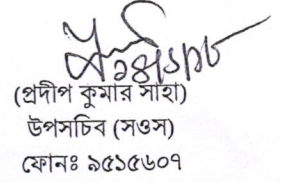 (প্রদীপ কুমার সাহা)
উপসচিব (সওস)
ফোনঃ ৯৫১৫৬০৭